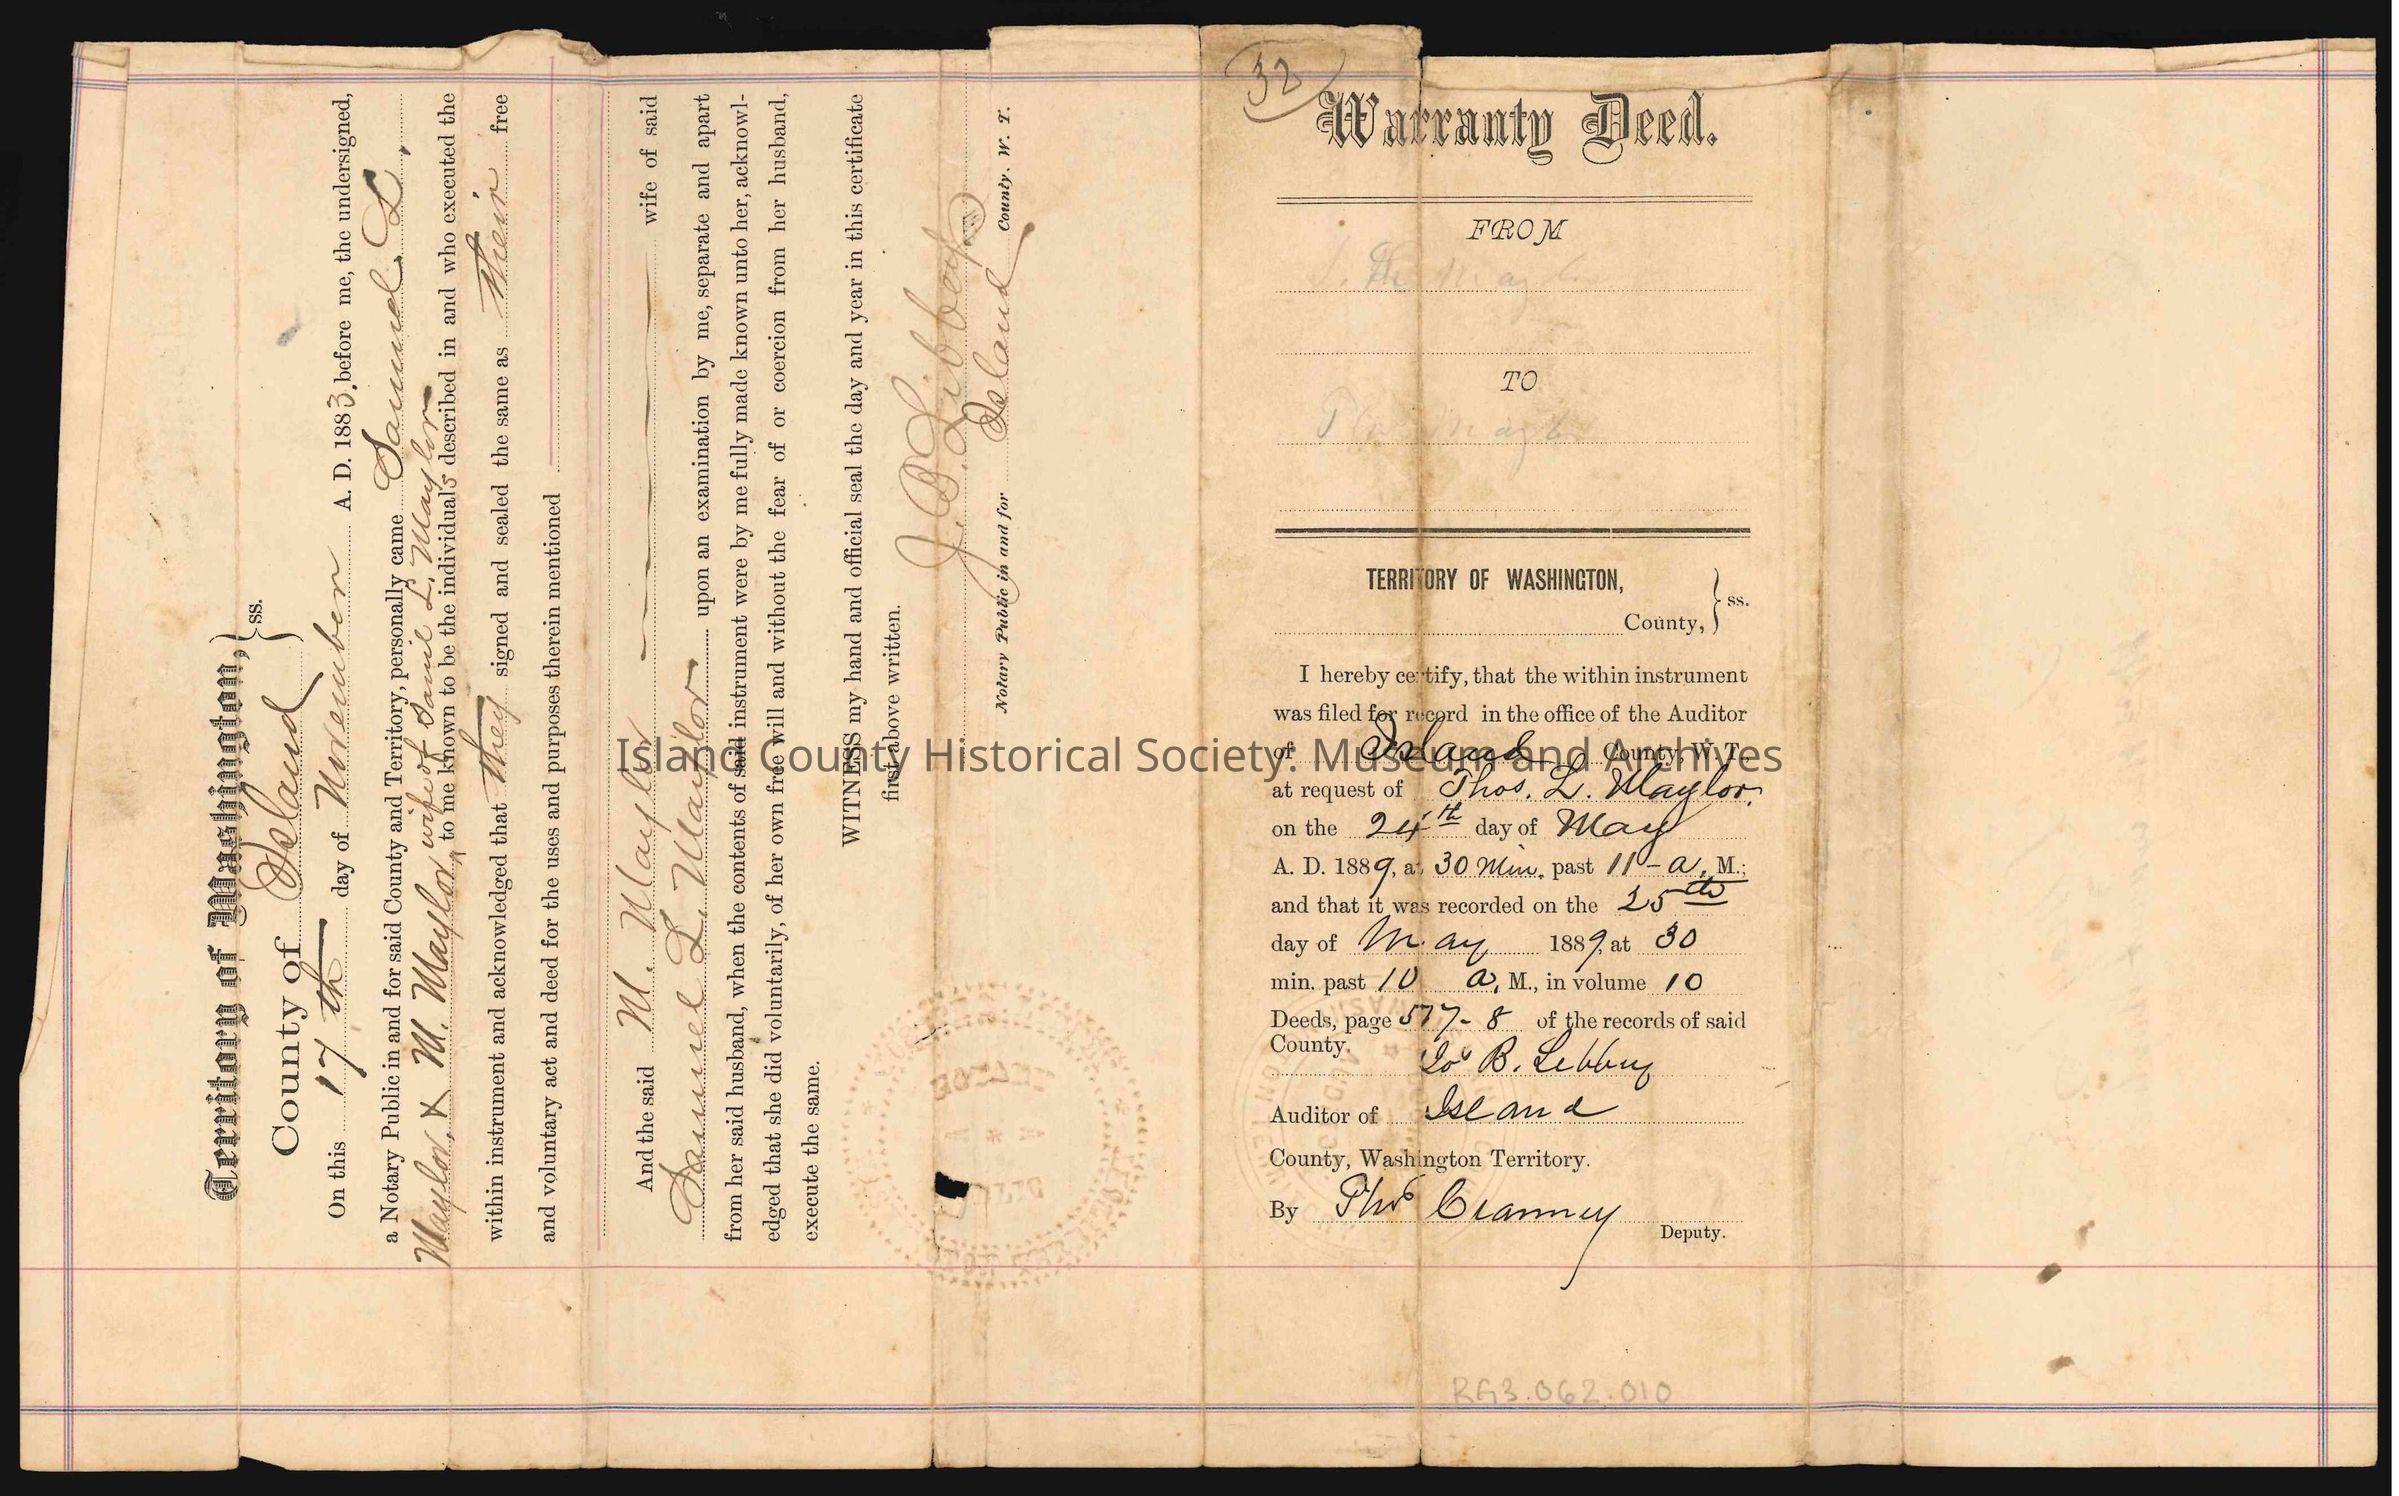 Territory of Washington, } ss.
County of Island
On this 17th day of November A. D. 1883, before me, the undersigned,
a Notary Public in and for said County and Territory, personally came Samuel L.
Maylor, & M. Maylor wife of Samuel L. Maylor
to me known to be the individuals described in and who executed the
within instrument and acknowledged that they signed and sealed the same as their free
and voluntary act and deed for the uses and purposes therein mentioned
And the said M. Maylor wife of said
Samuel L. Maylor upon an examination by me, separate and apart
from her said husband, when the contents of said instrument were by me fully made known unto her, acknowl-
edged that she did voluntarily, of her own free will and without the fear of or coercion from her husband,
execute the same.
WITNESS my hand and official seal the day and year in this certificate
first above written.
J. B. Libbey
Notary Public in and for Island County. W. T.
32
Warranty Deed.
FROM
TO
TERRITORY OF WASHINGTON,
County, } ss.
I hereby certify, that the within instrument
was filed for record in the office of the Auditor
of Island County, W. T.
at request of Thos. L. Maylor,
on the 24th day of May
A. D. 1889, at 30 Min. past 11 - a, M.;
and that it was recorded on the 25th
day of May 1889, at 30
min. past 10 a, M., in volume 10
Deeds, page 577-8 of the records of said
County.
Jos B. Libbey
Auditor of Island
County, Washington Territory.
By Thos Cranney
Deputy.
RG3.062.010
Island County Historical Society. Museum and Archives